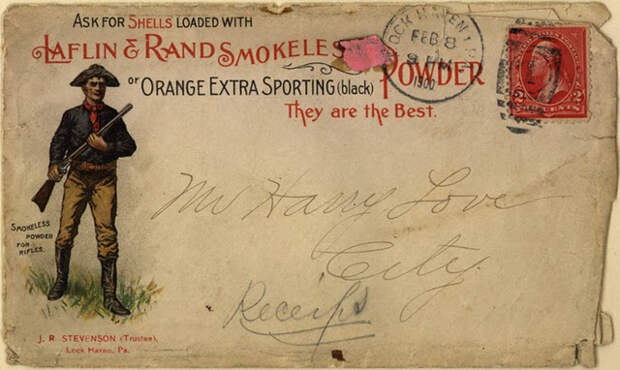 ASK FOR SHELLS LOADED WITH
LAFLIN & RAND SMOKELES POWDER
or ORANGE EXTRA SPORTING (black)
They are the Best.
OCK HAVEN
FEB 8
1900
2 CENTS 2
Mr Harry Love
City.
Receipts
SMOKELESS
POWDER
FOR
RIFLES.
J. R. STEVENSON (Trustee),
Lock Haven, Pa.